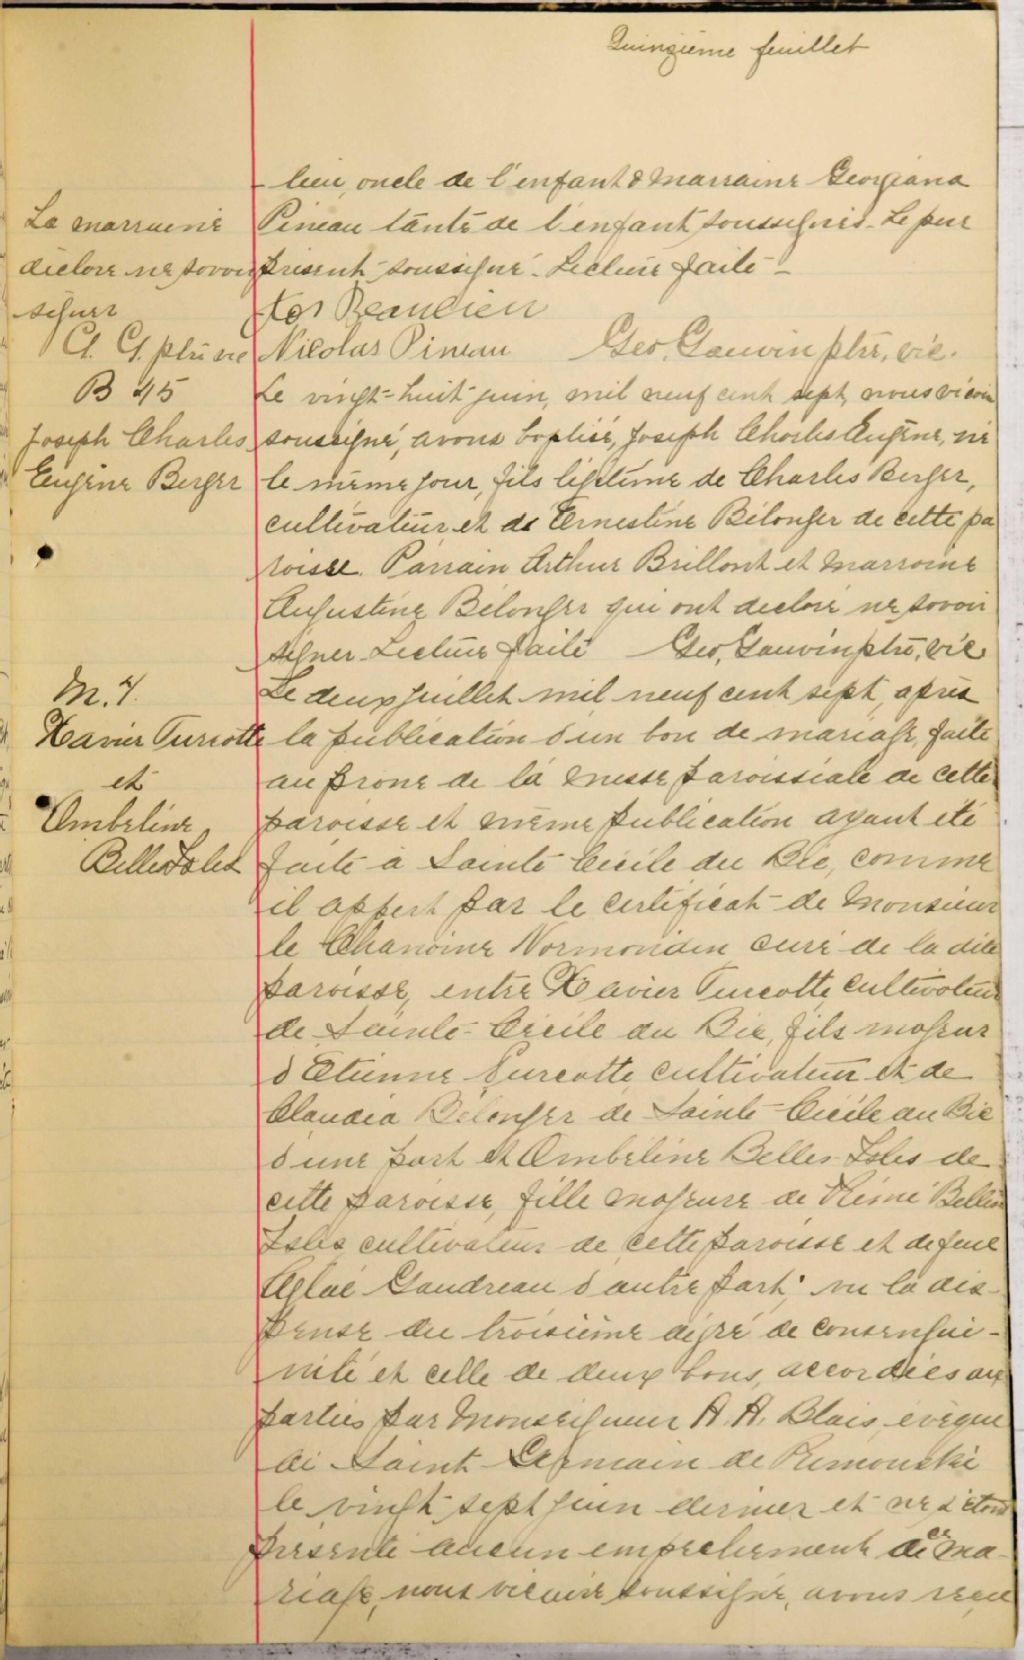 Quinzième feuillet
lieu, oncle de l'enfant & marraine Georgiana
La marraine
Pineau tante de l'enfant, soussignés. Le père
déclare ne savoir
présent soussigné. Lecture faite -
signer
Jos Beaulieu
G. G. ptre vic
Nicolas Pineau Geo. Gauvin ptre, vic.
B 45
Le vingt-huit juin, mil neuf cent sept, nous vicaire
Joseph Charles
soussigné, avons baptisé, Joseph Charles Eugène, né
Eugène Berger
le même jour, fils légitime de Charles Berger,
cultivateur et de Ernestine Bélanger de cette pa
roisse. Parrain Arthur Brillant et marraine
Augustine Bélanger qui ont déclaré ne savoir
signer. Lecture faite Geo. Gauvin ptre, vic
Le deux juillet mil neuf cent sept, après
Xavier Turcotte
la publication d'un ban de mariage, faite
et
au prone de la messe paroissiale de cette
Ombéline
paroisse et même publication ayant été
Belles Isles
faite à Sainte Cécile du Bic, comme
il appert par le certificat de Monsieur
le Chanoine Normandin curé de la dite
paroisse, entre Xavier Turcotte, cultivateur
de Sainte-Cécile du Bic, fils majeur
d'Etienne Turcotte cultivateur et de
Claudia Bélanger de Sainte-Cécile du Bic
d'une part et Ombéline Belles-Isles de
cette paroisse, fille majeure de Rémi Belles
Isles cultivateur de cette paroisse et de feue
Aglaé Gaudreau d'autre part; vu la dis-
pense du troisième degré de consangui-
nité et celle de deux bans, accordées aux
parties par Monseigneur A. A. Blais, évêque
de Saint Germain de Rimouski
le vingt sept juin dernier et ne s'étant
présenté aucun empêchement de ce ma-
riage, nous vicaire soussigné, avons reçu